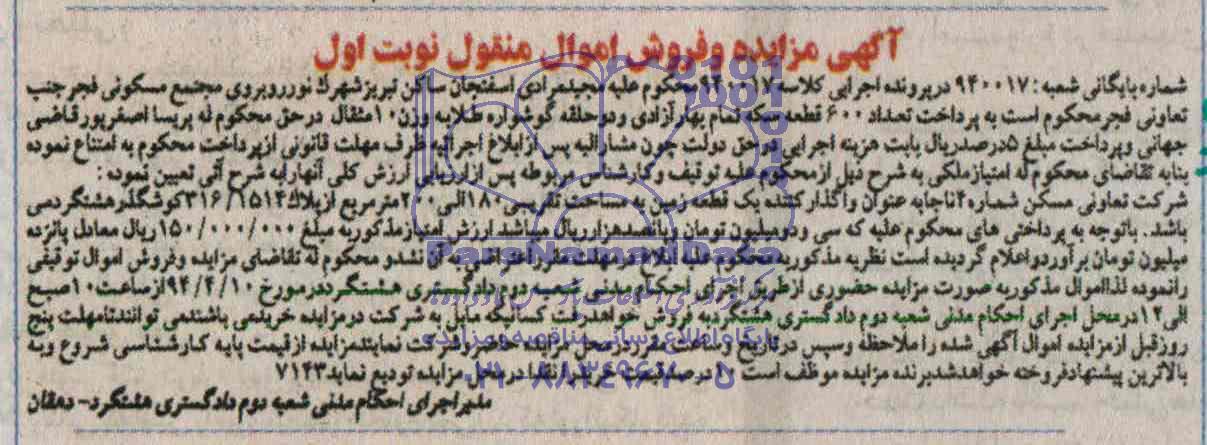 آگهی مزایده وفروش اموال منقول نوبت اول
شماره بایگانی شعبه: ۹۴۰۰۱۷ درپرونده اجرایی کلاسه محکوم علیه مجیدمرادی اسفنجان ساکن تبریزشهرك نورروبروی مجتمع مسکونی فجرجنب
تعاونی فجرمحکوم است به پرداخت تعداد ۶۰۰ قطعه سکه تمام بهارآزادی ودوحلقه گوشواره طلابه وزن۱۰مثقال درحق محکوم له پریسا اصغرپورقاضی
جهانی وپرداخت مبلغ ۵درصدریال بابت هزینه اجرایی درحق دولت چون مشارالیه پس ازابلاغ اجراییه ظرف مهلت قانونی ازپرداخت محکوم به امتناع نموده
بنابه تقاضای محکوم له امتیازملکی به شرح ذیل ازمحکوم علیه توقیف وکارشناس مربوطه پس ازارزیابی ارزش کلی آنهارابه شرح آتی تعیین نموده :
شرکت تعاونی مسکن شماره۴ناجابه عنوان واگذارکننده یک قطعه زمین به مساحت تقریبی۱۸۰الی۲۰۰مترمربع ازپلاك۳۱۶/۱۵۱۴کوشگذرهشتگردمی
باشد. باتوجه به پرداختی های محکوم علیه که سی ودومیلیون تومان وپانصدهزارریال میباشدارزش امتیازمذکوربه مبلغ ۱۵۰/۰۰۰/۰۰۰ریال معادل پانزده
میلیون تومان برآوردواعلام گردیده است نظریه مذکوربه محکوم علیه ابلاغ ودرمهلت مقرراعتراضی به آن نشدو محکوم له تقاضای مزایده وفروش اموال توقیفی
رانموده لذااموال مذکوربه صورت مزایده حضوری ازطریق اجرای احکام مدنی شعبه دوم دادگستری هشتگرددرمورخ ۹۴/۴/۱۰ازساعت۱۰صبح
الی۱۲درمحل اجرای احکام مدنی شعبه دوم دادگستری هشتگردبه فروش خواهدرفت کسانیکه مایل به شرکت درمزایده خریدمی باشندمی توانندتامهلت پنج
روزقبل ازمزایده اموال آگهی شده راملاحظه وسپس درتاریخ وساعت مقرردرمحل مزایده حاضروشرکت نمایندمزایده ازقیمت پایه کارشناسی شروع وبه
بالاترین پیشنهادفروخته خواهدشدبرنده مزایده موظف است ۱۰درصدقیمت خریدرانقدا درمحل مزایده تودیع نماید۷۱۴۳
مدیراجرای احکام مدنی شعبه دوم دادگستری هشتگرد- دهقان
ParsNamadData
پایگاه اطلاع رسانی مناقصه و مزایده
۰۲۱-۸۸۳۴۹۶۷۰-۵